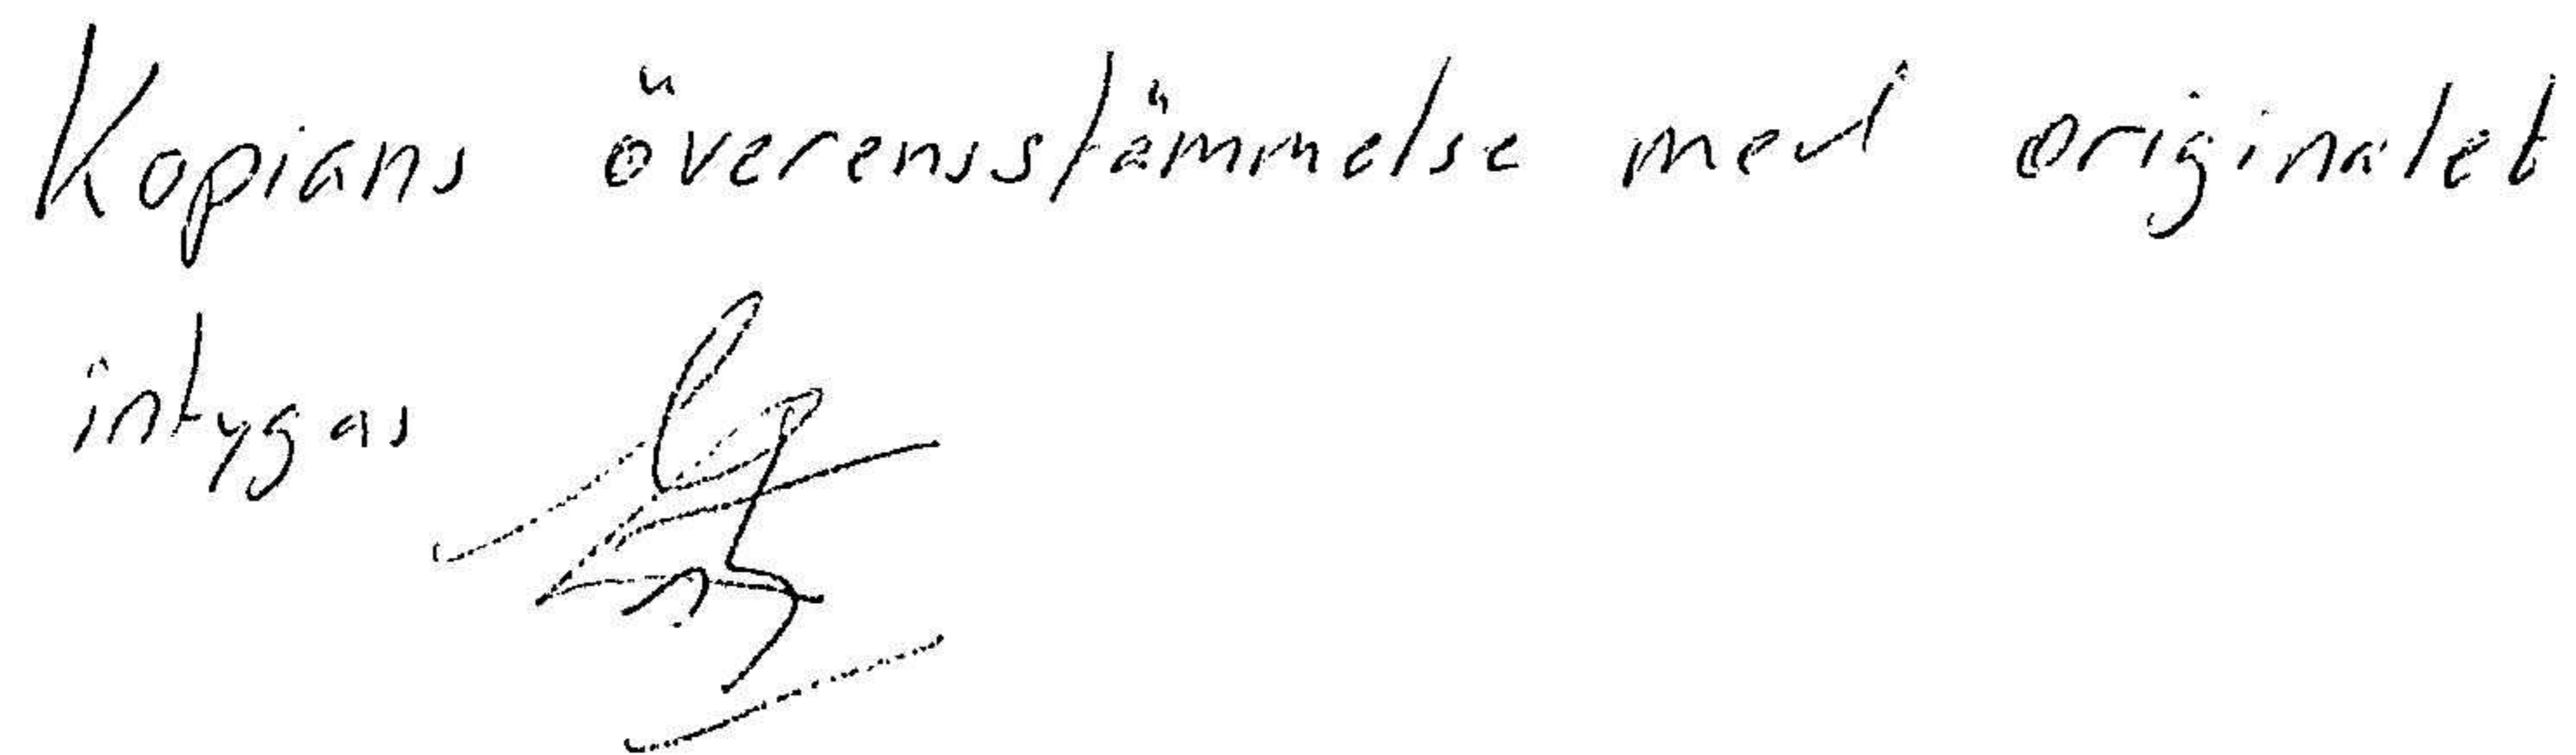 Kopians överensstämmelse med originalet
intygas